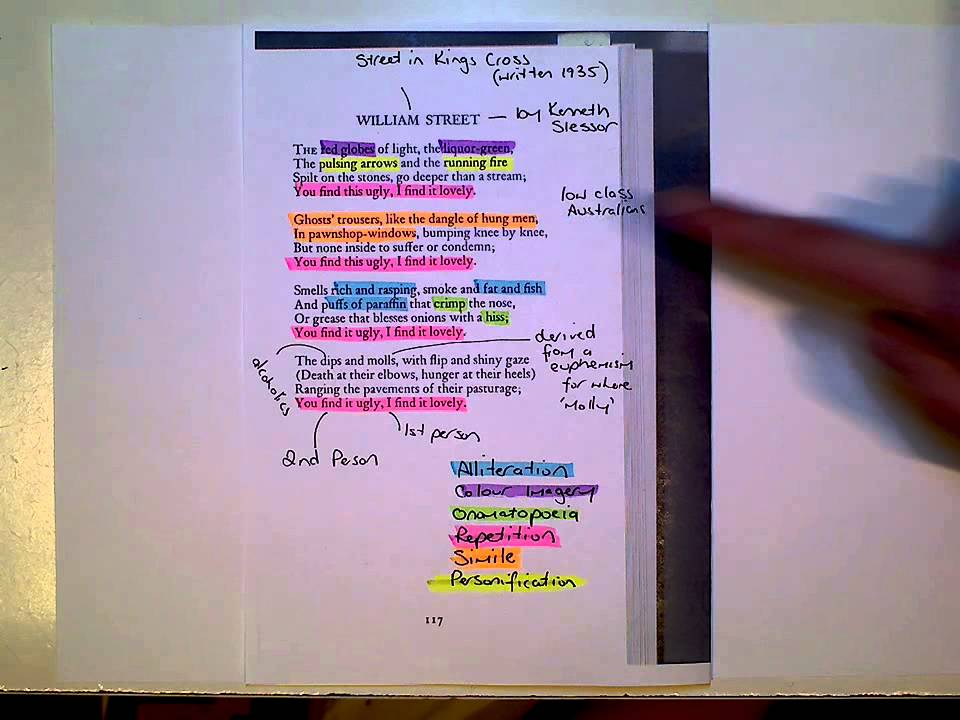 Street in Kings Cross
(written 1935)
WILLIAM STREET — by Kenneth
Slessor
THE red globes of light, the liquor-green,
The pulsing arrows and the running fire
Spilt on the stones, go deeper than a stream;
You find this ugly, I find it lovely.
low class
Australians
Ghosts' trousers, like the dangle of hung men,
In pawnshop-windows, bumping knee by knee,
But none inside to suffer or condemn;
You find this ugly, I find it lovely.
Smells rich and rasping, smoke and fat and fish
And puffs of paraffin that crimp the nose,
Or grease that blesses onions with a hiss;
You find it ugly, I find it lovely.
derived
from a
euphemism
for whore
'Molly'
alcoholics
The dips and molls, with flip and shiny gaze
(Death at their elbows, hunger at their heels)
Ranging the pavements of their pasturage;
You find it ugly, I find it lovely.
1st person
2nd Peson
Alliteration
Colour Imagery
Onomatopoeia
Repetition
Simile
Personification
117